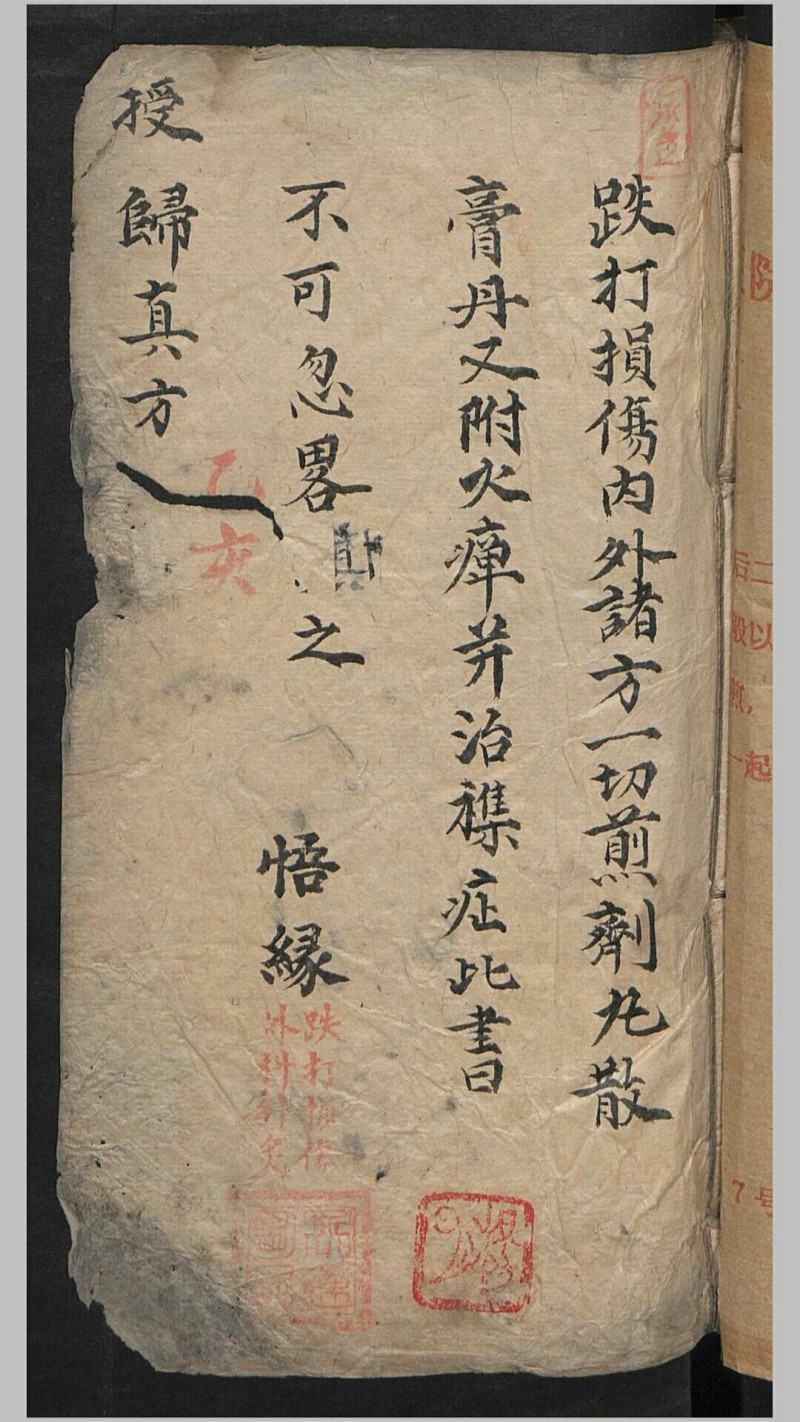 跌打損傷內外諸方一切煎劑丸散
膏丹又附火瘴并治襍症此書曰
不可忽畧 之
悟緣
授歸真方
乙亥
跌打損傷
外科針灸
后二
殿以
煎，
一起
7号